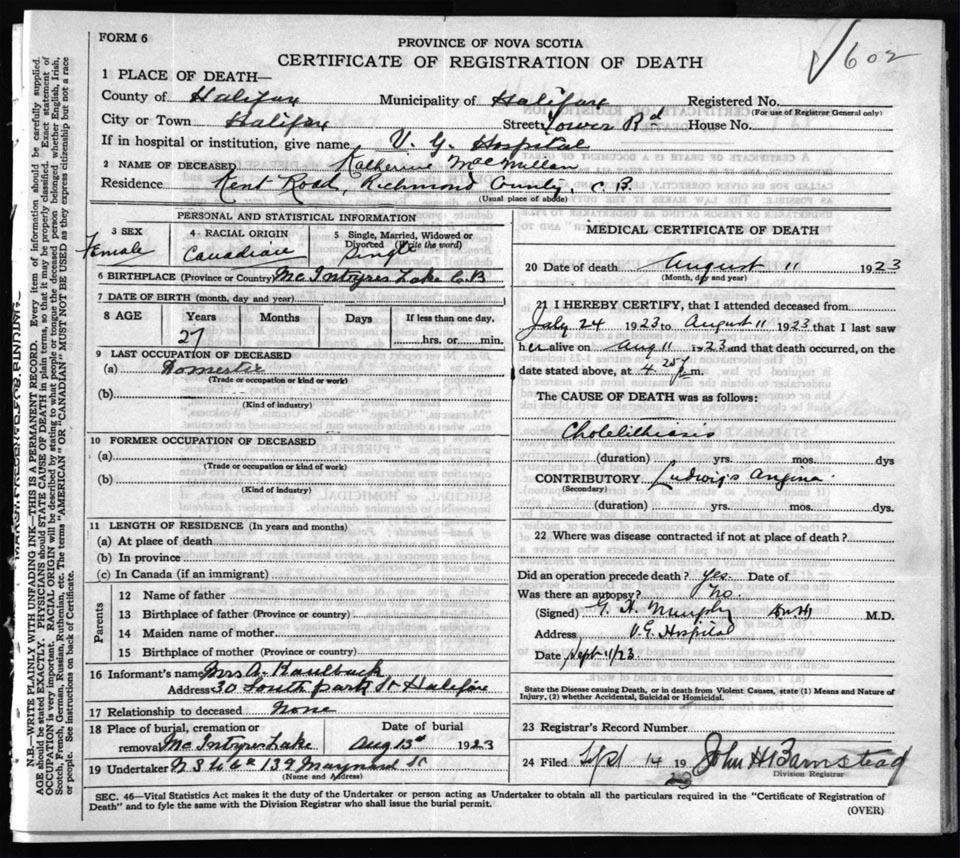 FORM 6
√602
PROVINCE OF NOVA SCOTIA
CERTIFICATE OF REGISTRATION OF DEATH
1 PLACE OF DEATH—
County of Halifax Municipality of Halifax Registered No.
(For use of Registrar General only)
City or Town Halifax Street Tower Rd House No.
If in hospital or institution, give name V. G. Hospital
2 NAME OF DECEASED Katherine MacMillan
Residence Kent Road, Richmond County, C. B.
(Usual place of abode)
PERSONAL AND STATISTICAL INFORMATION
3 SEX 4 RACIAL ORIGIN 5 Single, Married, Widowed or Divorced (Write the word)
Female Canadian Single
6 BIRTHPLACE (Province or Country) McIntyres Lake C.B
7 DATE OF BIRTH (month, day and year)
8 AGE Years Months Days If less than one day,
27 hrs. or min.
9 LAST OCCUPATION OF DECEASED
(a) Domestic
(Trade or occupation or kind or work)
(b)
(Kind of industry)
10 FORMER OCCUPATION OF DECEASED
(a)
(Trade or occupation or kind of work)
(b)
(Kind of industry)
11 LENGTH OF RESIDENCE (In years and months)
(a) At place of death
(b) In province
(c) In Canada (if an immigrant)
Parents
12 Name of father
13 Birthplace of father (Province or country)
14 Maiden name of mother
15 Birthplace of mother (Province or country)
16 Informant's name Mrs A.
Address 30 South Park St Halifax
17 Relationship to deceased None
18 Place of burial, cremation or removal McIntyres Lake Date of burial Aug 13th 1923
19 Undertaker N S U Co 139 Maynard St
(Name and Address)
MEDICAL CERTIFICATE OF DEATH
20 Date of death August 11 1923
(Month, day and year)
21 I HEREBY CERTIFY, that I attended deceased from
July 24 1923 to August 11 1923 that I last saw
her alive on Aug 11 1923 and that death occurred, on the
date stated above, at 4.25 p.m.
The CAUSE OF DEATH was as follows:
Cholelithiasis
(duration) yrs. mos. dys
CONTRIBUTORY Ludwig's Angina
(Secondary)
(duration) yrs. mos. dys.
22 Where was disease contracted if not at place of death?
Did an operation precede death? Yes. Date of
Was there an autopsy? No.
(Signed) G. H. Murphy M.D.
Address V.G. Hospital
Date Sept 11/23
State the Disease causing Death, or in death from Violent Causes, state (1) Means and Nature of
Injury, (2) whether Accidental, Suicidal or Homicidal.
23 Registrar's Record Number
24 Filed Sept 14 19 23 John H Barnstead
Division Registrar
SEC. 46—Vital Statistics Act makes it the duty of the Undertaker or person acting as Undertaker to obtain all the particulars required in the "Certificate of Registration of
Death" and to fyle the same with the Division Registrar who shall issue the burial permit.
(OVER)
N.B.—WRITE PLAINLY WITH UNFADING INK—THIS IS A PERMANENT RECORD. Every item of information should be carefully supplied.
AGE should be stated EXACTLY. PHYSICIANS should STATE CAUSE OF DEATH in plain terms, so that it may be properly classified. Exact statement of
OCCUPATION is very important. RACIAL ORIGIN will be described by stating to what people or tongue the deceased person belonged, whether English, Irish,
Scotch, French, German, Russian, Ruthenian, etc. The terms "AMERICAN" OR "CANADIAN" MUST NOT BE USED as they express citizenship but not a race
or people. See instructions on back of Certificate.